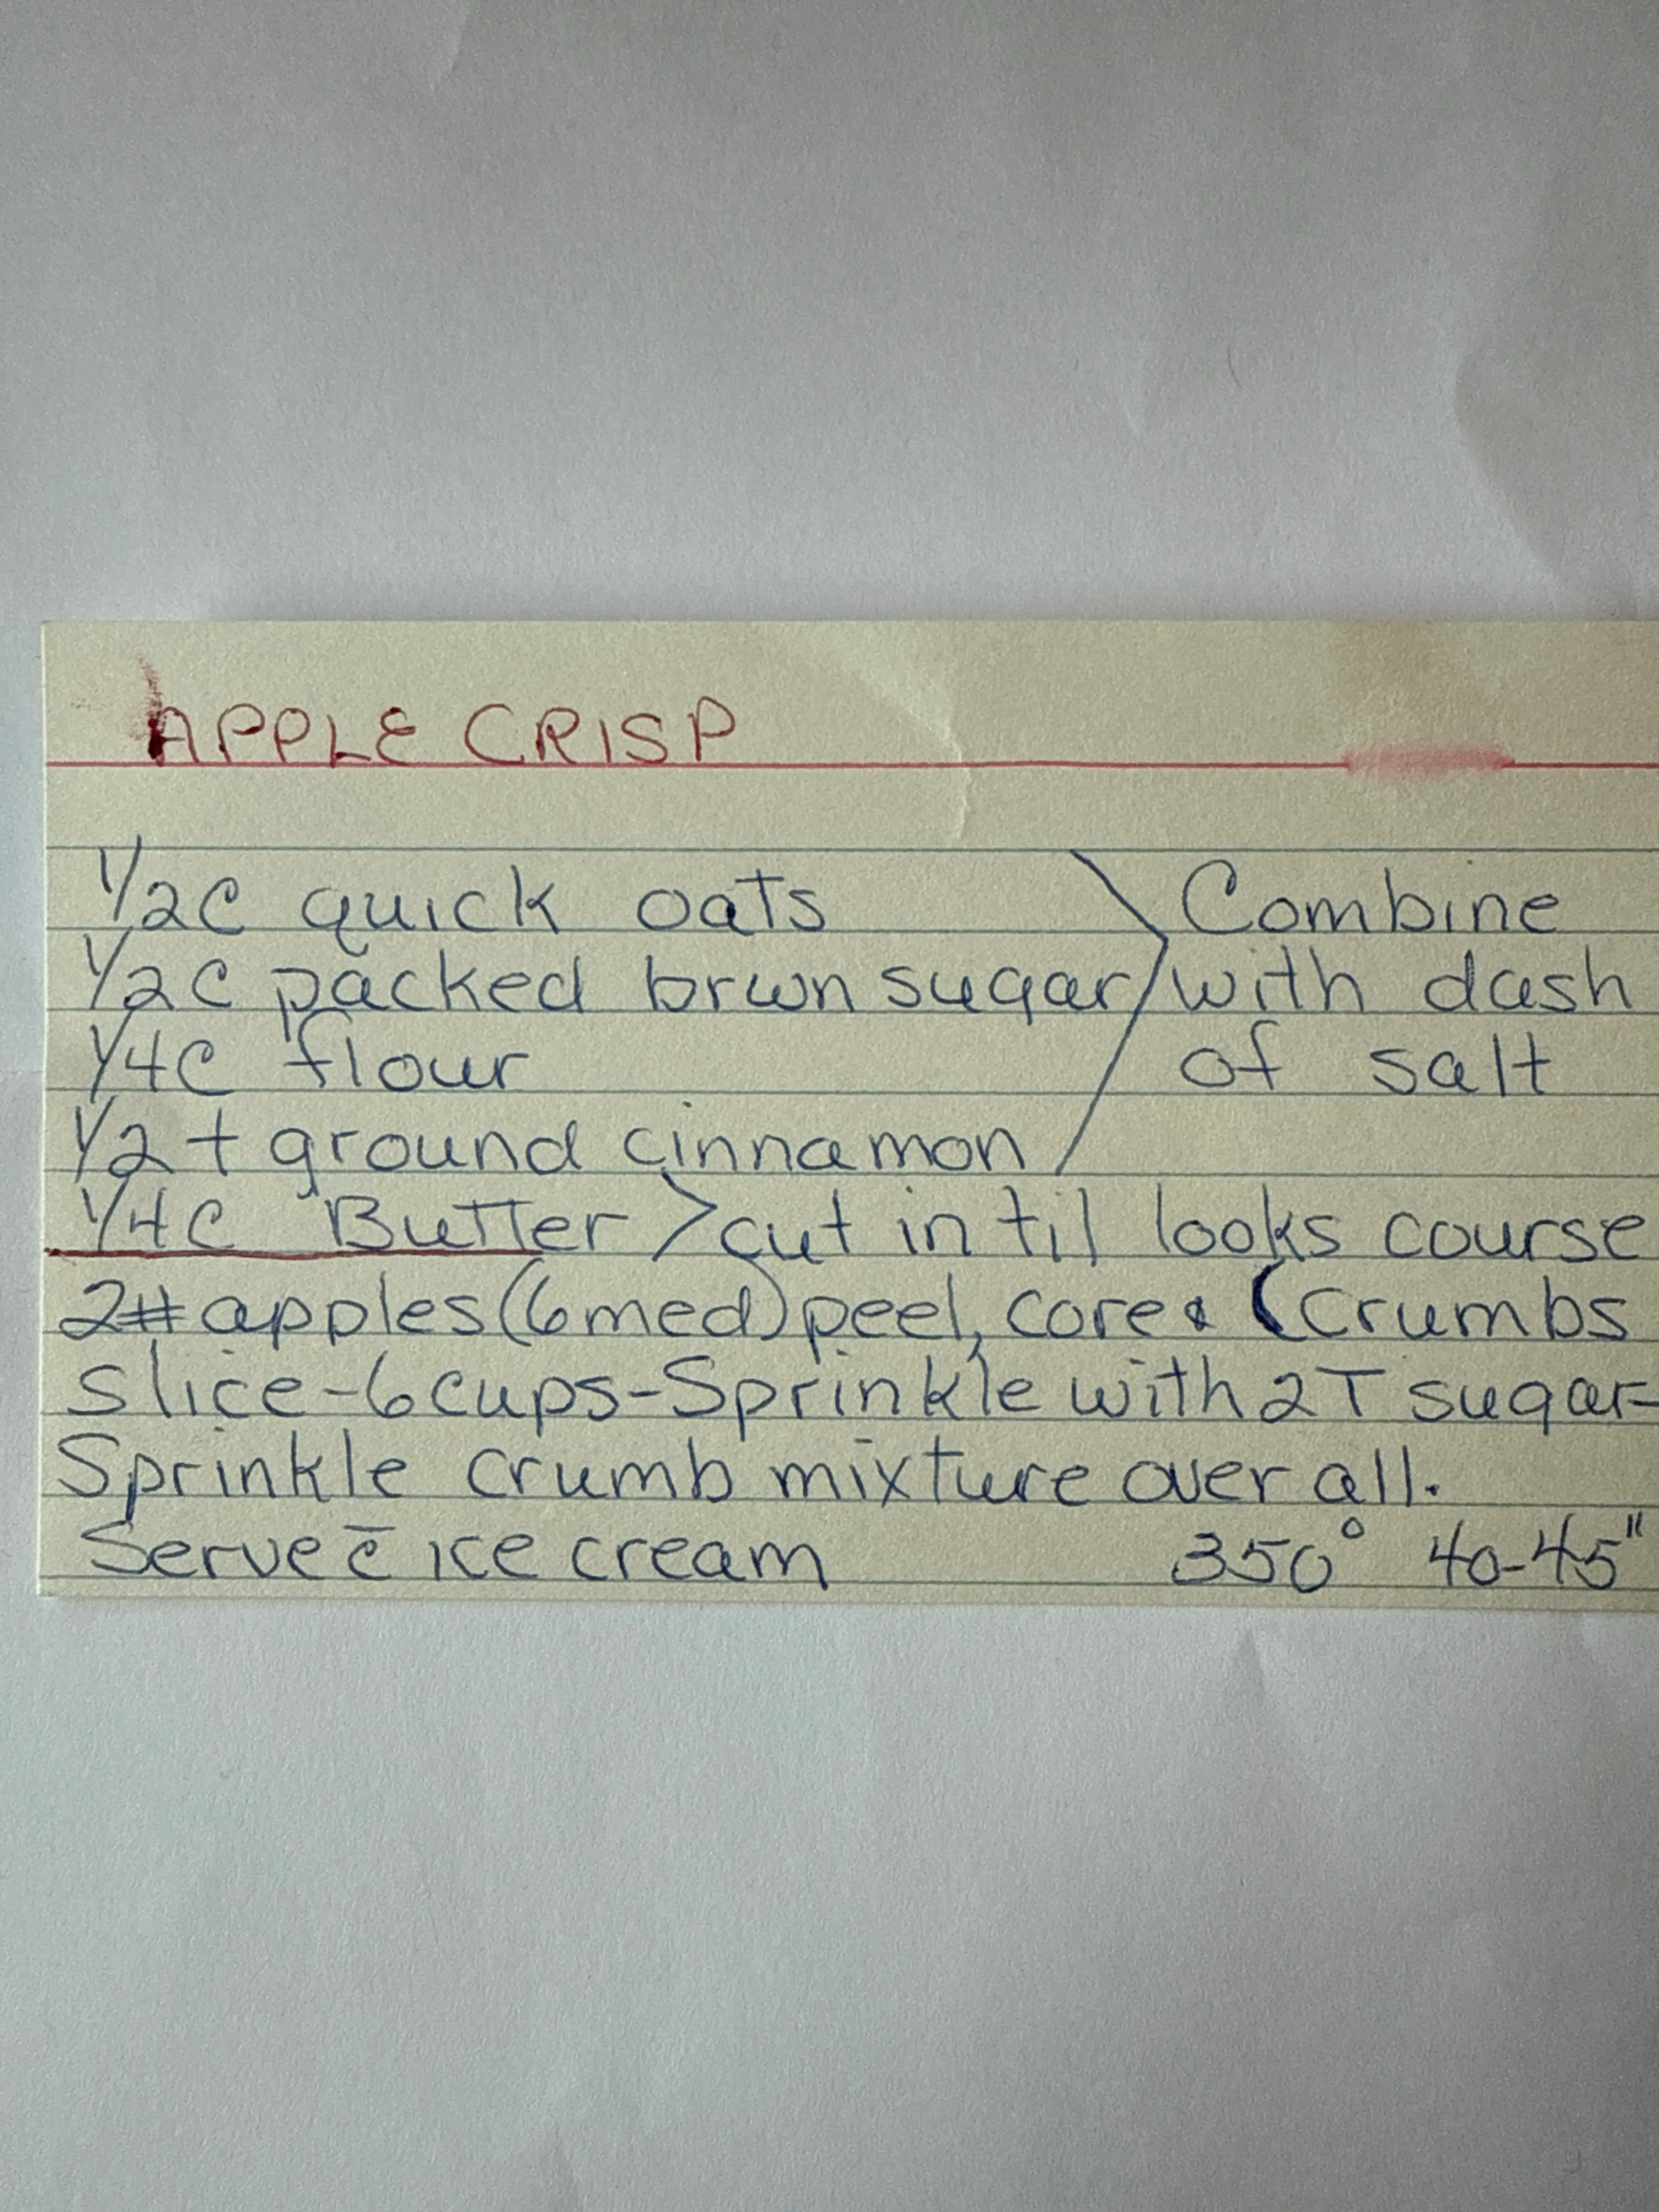 APPLE CRISP
1/2C quick oats Combine
1/2C packed brwn sugar with dash
1/4C flour of salt
1/2 t ground cinnamon
1/4C Butter > cut in til looks course
2# apples (6 med) peel, core & (crumbs
slice - 6 cups - Sprinkle with 2T sugar-
Sprinkle crumb mixture over all.
Serve c̄ ice cream 350° 40-45"